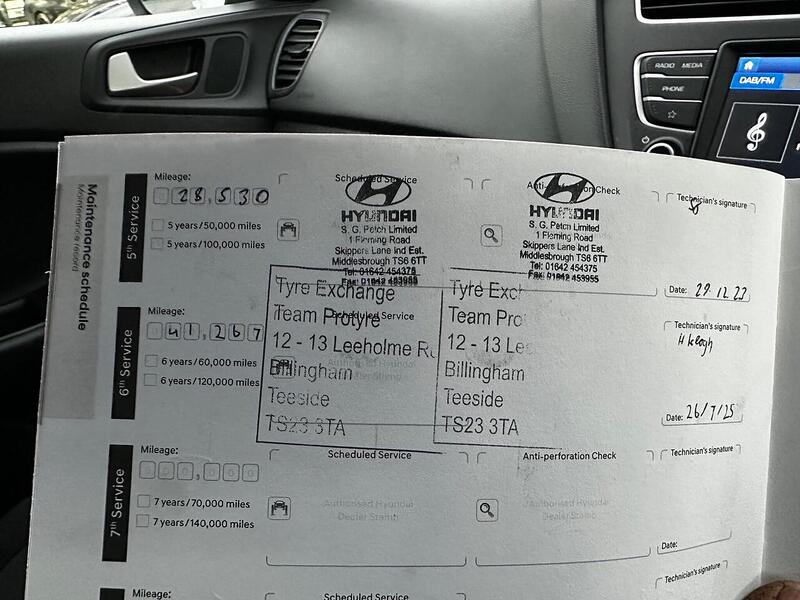 RADIO MEDIA
PHONE
DAB/FM
Maintenance schedule
Maintenance record
5th Service
Mileage:
28,530
5 years/50,000 miles
5 years/100,000 miles
Scheduled Service
HYUNDAI
S. G. Petch Limited
1 Fleming Road
Skippers Lane Ind Est.
Middlesbrough TS6 6TT
Tel: 01642 454375
Fax: 01642 453955
Anti-perforation Check
HYUNDAI
S. G. Petch Limited
1 Fleming Road
Skippers Lane Ind Est.
Middlesbrough TS6 6TT
Tel: 01642 454375
Fax: 01642 453955
Technician's signature
Date: 29.12.23
6th Service
Mileage:
41,267
6 years/60,000 miles
6 years/120,000 miles
Scheduled Service
Authorised Hyundai
Dealer Stamp
Tyre Exchange
Team Protyre
12 - 13 Leeholme R
Billingham
Teeside
TS23 3TA
Tyre Exch
Team Pro
12 - 13 Lee
Billingham
Teeside
TS23 3TA
Technician's signature
Date: 26/7/25
7th Service
Mileage:
7 years/70,000 miles
7 years/140,000 miles
Scheduled Service
Authorised Hyundai
Dealer Stamp
Anti-perforation Check
Authorised Hyundai
Dealer Stamp
Technician's signature
Date:
Mileage:
Scheduled Service
Technician's signature